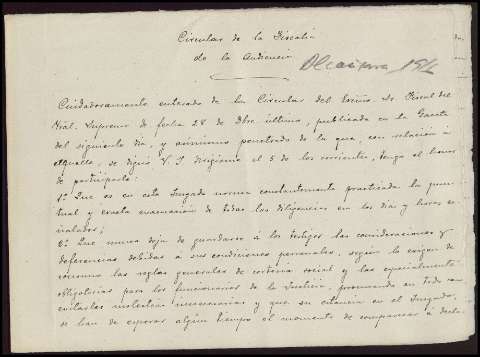 Circular de la Fiscalía
de la Audiencia
Alcañiz 1912
Cuidadosamente enterado de la Circular del Excmo Sr. Fiscal del
Tral. Supremo de fecha 28 de Obre último, publicada en la Gaceta
del siguiente día, y asimismo penetrado de la que, con relación á
aquella, se dignó V. I. dirigirme el 5 de los corrientes, tengo el honor
de participarle:
1º Que es en este Juzgado norma constantemente practicada la pun-
tual y exacta evacuación de todas las diligencias en los días y horas se-
ñalados;
2º Que nunca deja de guardarse á los testigos las consideraciones y
deferencias debidas á sus condiciones personales, según lo exigen de
consuno las reglas generales de cortesía social y las especialmente
obligatorias para los funcionarios de la Justicia, procurando en todo caso
evitarles molestias innecesarias y que su estancia en el Juzgado,
se han de esperar algún tiempo el momento de comparecer á decla-